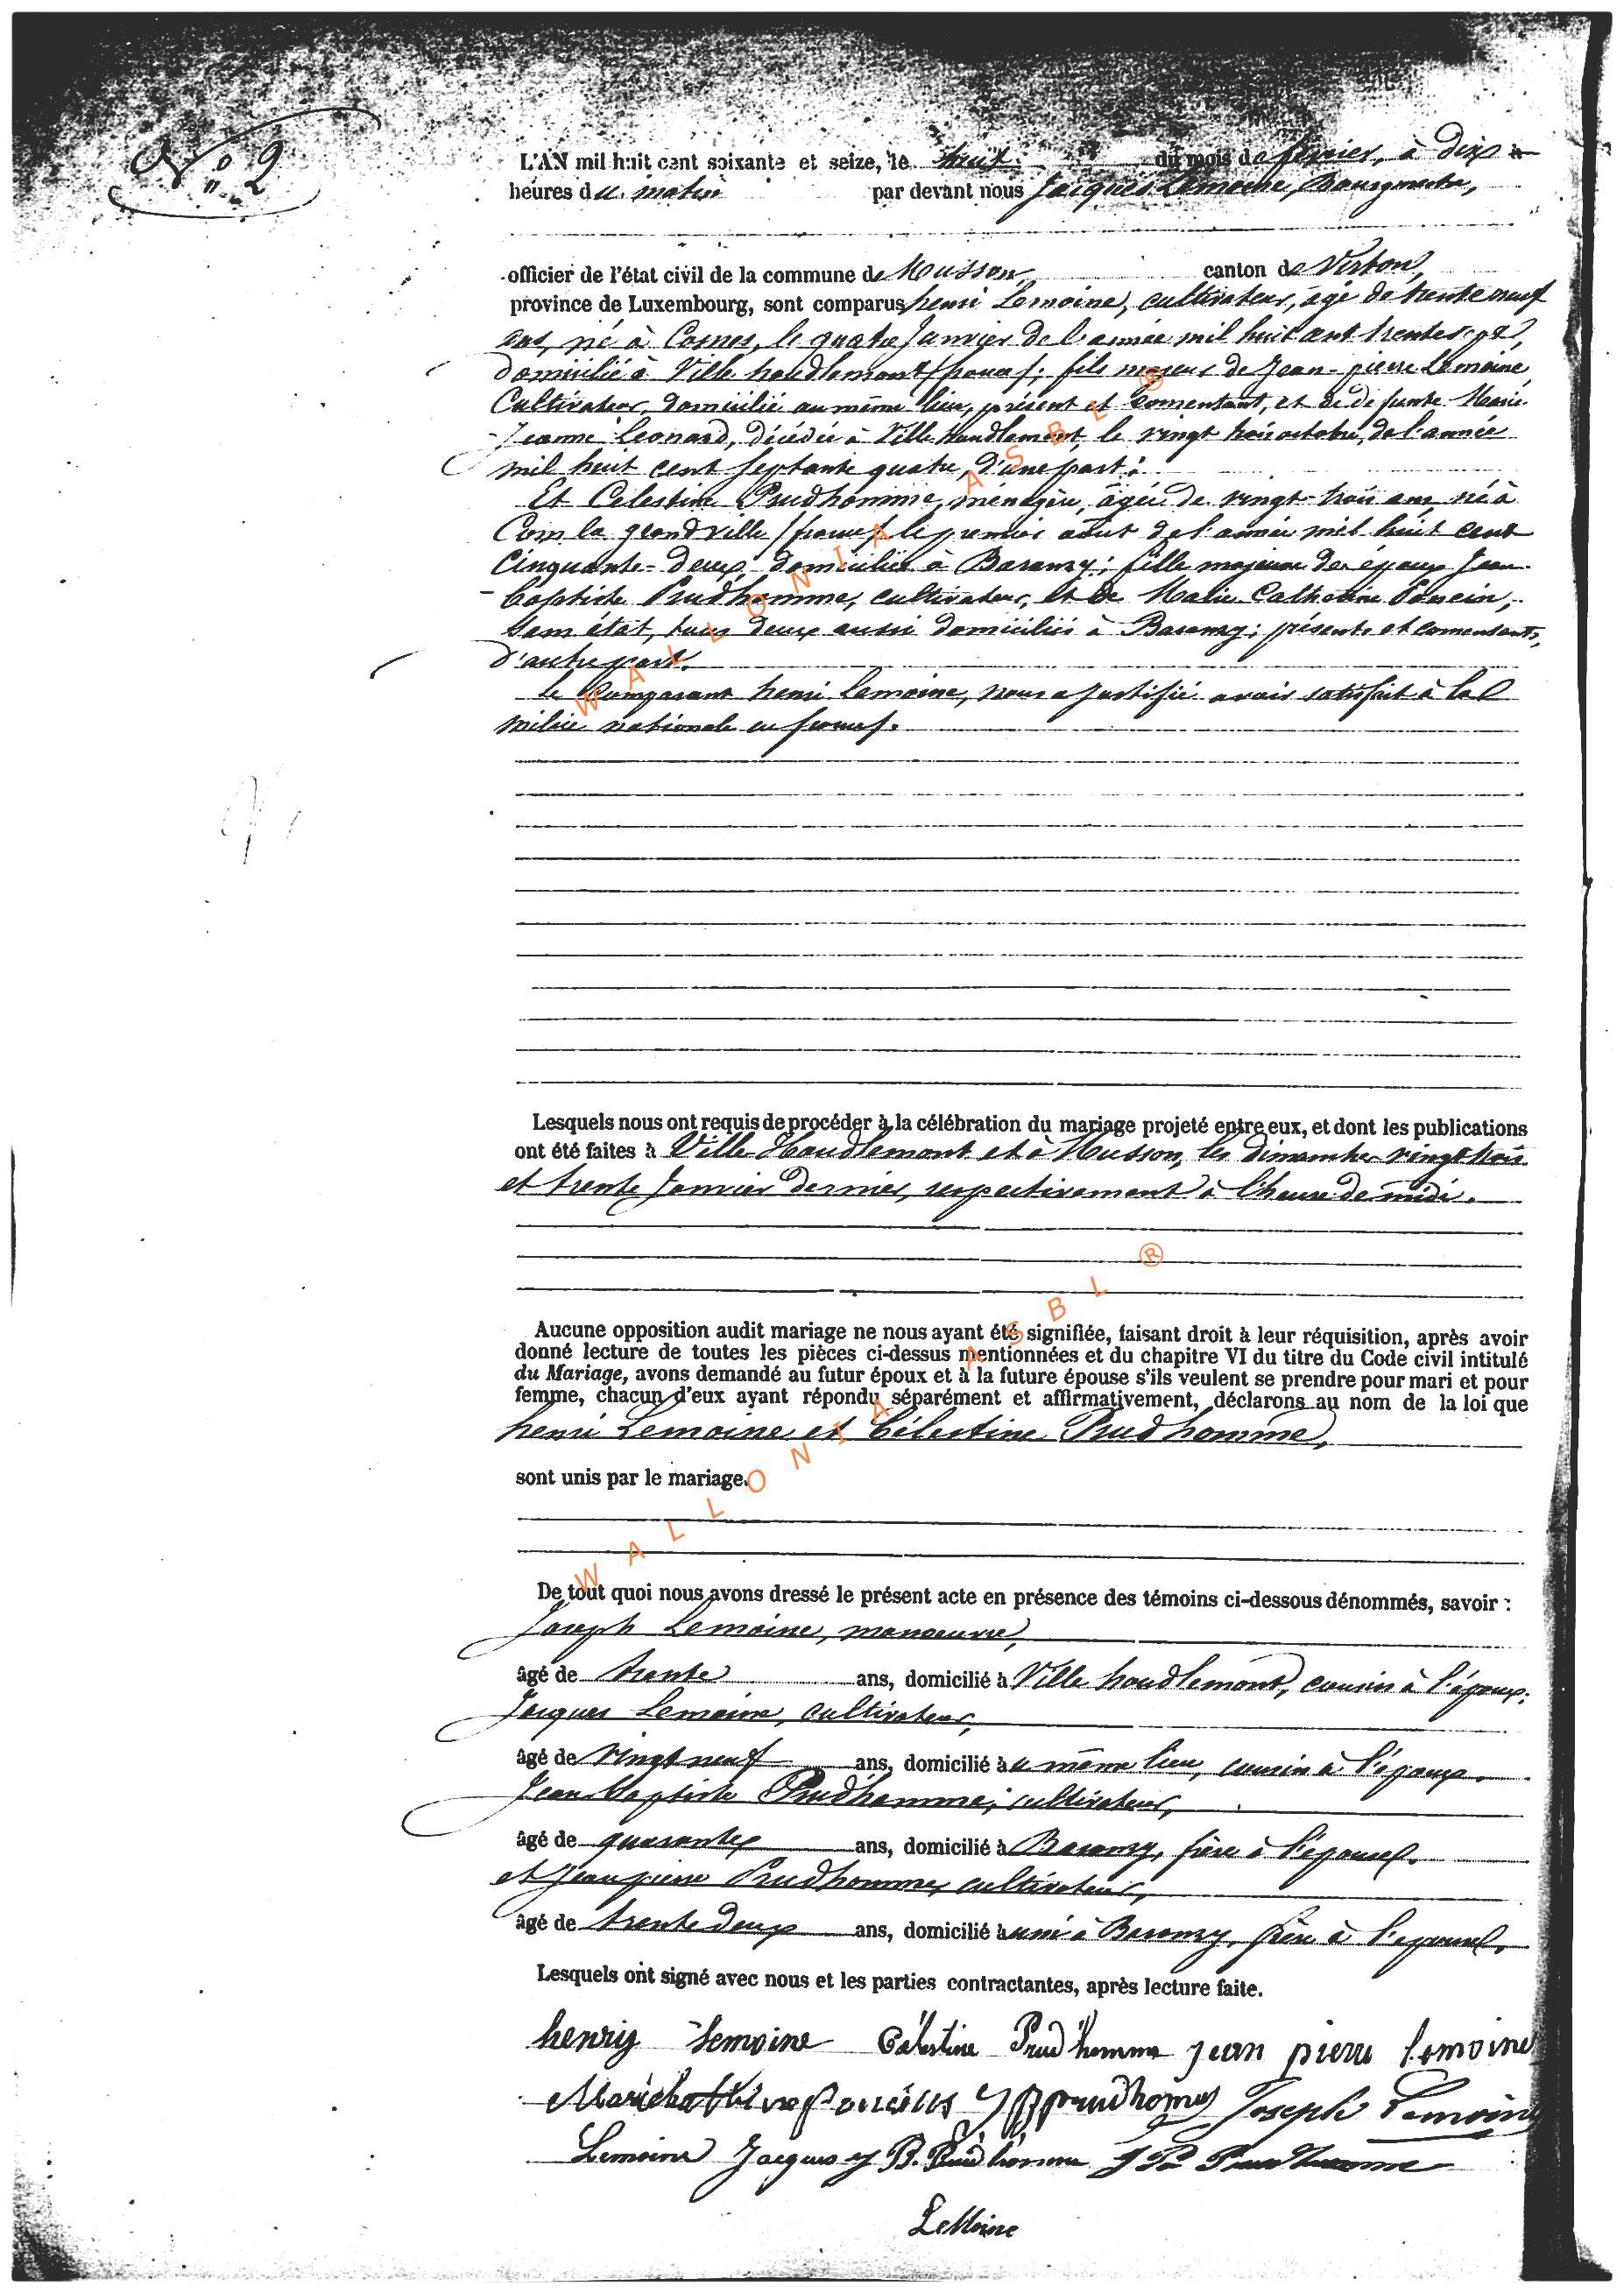 N° 2
L'AN mil huit cent soixante et seize, le huit du mois de février, à dix
heures du matin par devant nous Jacques Lemoine, Bourgmestre,
officier de l'état civil de la commune de Musson, canton de Virton,
province de Luxembourg, sont comparus henri Lemoine, cultivateur, âgé de trente neuf
ans, né à Cosnes, le quatre Janvier de l'année mil huit cent trente sept,
domicilié à Ville houdlemont (france); fils majeur de Jean-pierre Lemoine,
Cultivateur, domicilié au même lieu, présent et consentant, et de defunte Marie
Jeanne Leonard, décédée à Ville houdlemont, le vingt trois octobre, de l'année
mil huit cent septante quatre, d'une part:
Et Celestine Prudhomme, ménagère, âgée de vingt-trois ans, née à
Cons la grandville (france) le premier août de l'année mil huit cent
Cinquante-deux domiciliée à Baranzy; fille majeure des époux Jean
baptiste Prudhomme, cultivateur, et de Marie Catherine Poncin,
Sans état, tous deux aussi domiciliés à Baranzy; présents et consentants,
d'autre part.
Le Comparant henri Lemoine, nous a justifié avoir satisfait à la
milice nationale en france.
Lesquels nous ont requis de procéder à la célébration du mariage projeté entre eux, et dont les publications
ont été faites à Ville-Houdlemont et à Musson, les dimanches vingt trois
et trente Janvier dernier, respectivement à l'heure de midi.
Aucune opposition audit mariage ne nous ayant été signifiée, faisant droit à leur réquisition, après avoir
donné lecture de toutes les pièces ci-dessus mentionnées et du chapitre VI du titre du Code civil intitulé
du Mariage, avons demandé au futur époux et à la future épouse s'ils veulent se prendre pour mari et pour
femme, chacun d'eux ayant répondu séparément et affirmativement, déclarons au nom de la loi que
henri Lemoine et Célestine Prudhomme,
sont unis par le mariage.
De tout quoi nous avons dressé le présent acte en présence des témoins ci-dessous dénommés, savoir :
Joseph Lemoine, manoeuvre,
âgé de trente ans, domicilié à Ville houdlemont, cousin à l'époux;
Jacques Lemoine, cultivateur,
âgé de vingt neuf ans, domicilié au même lieu, cousin à l'époux.
Jean baptiste Prudhomme, cultivateur,
âgé de quarante ans, domicilié à Baranzy, frère à l'épouse.
et Jean pierre Prudhomme, cultivateur,
âgé de trente deux ans, domicilié aussi à Baranzy, frère à l'epouse.
Lesquels ont signé avec nous et les parties contractantes, après lecture faite.
henriy Lemoine Célestine Prud'homme jean pierre lemoine
J B prudhomes Joseph Lemoine
Lemoine Jacques J B. Prud'homme J P Prudhomme
LeMoine
WALLONIA ASBL ®
WALLONIA ASBL ®